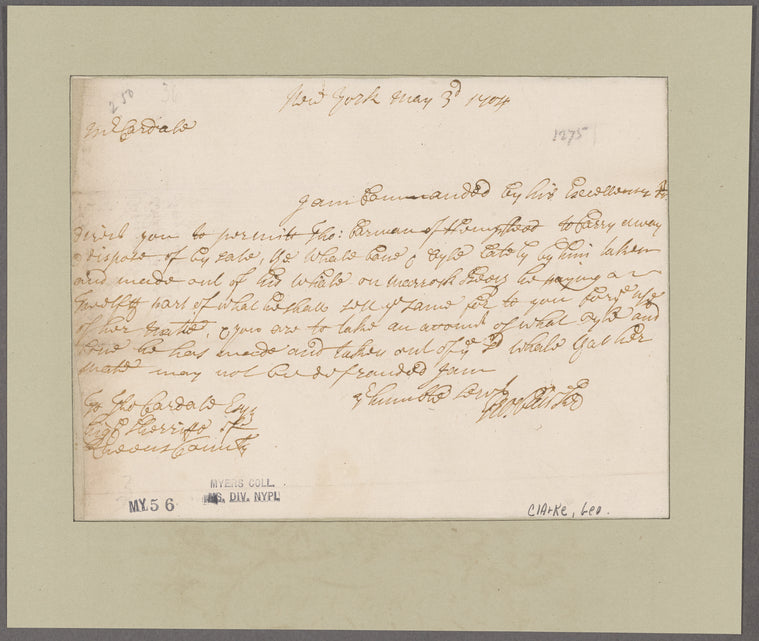 250 36
New York May 3d 1704
Mr Cardale
1275
I am Commanded by his Excellency to
direct you to permitt Tho: Carman of Hempstead to Carry away
& dispose of by sale, ye Whale bone & Oyle lately by him taken
and made out of his Whale on he paying a
twelfth part of what he shall sell ye same for to you for ye use
of her Matie; & you are to take an account of what Oyle and
bone he has made and taken out of ye sd Whale yt her
Matie may not be defrauded I am
Yr humble Servt
To Tho Cardale Esqr
high Sherriffe of
Queens County
MY 56
MYERS COLL.
MS. DIV. NYPL
Clarke, Geo.